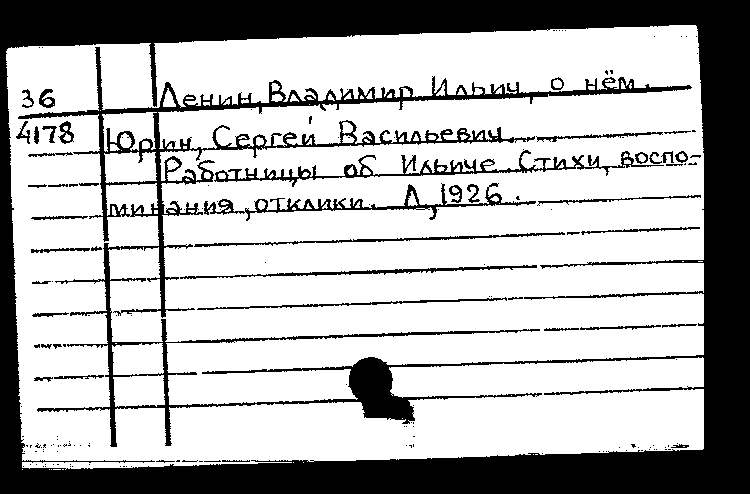 36 Ленин, Владимир Ильич, о нём.
4178 Юрин, Сергей Васильевич.
Работницы об Ильиче Стихи, воспо-
минания, отклики. Л, 1926.